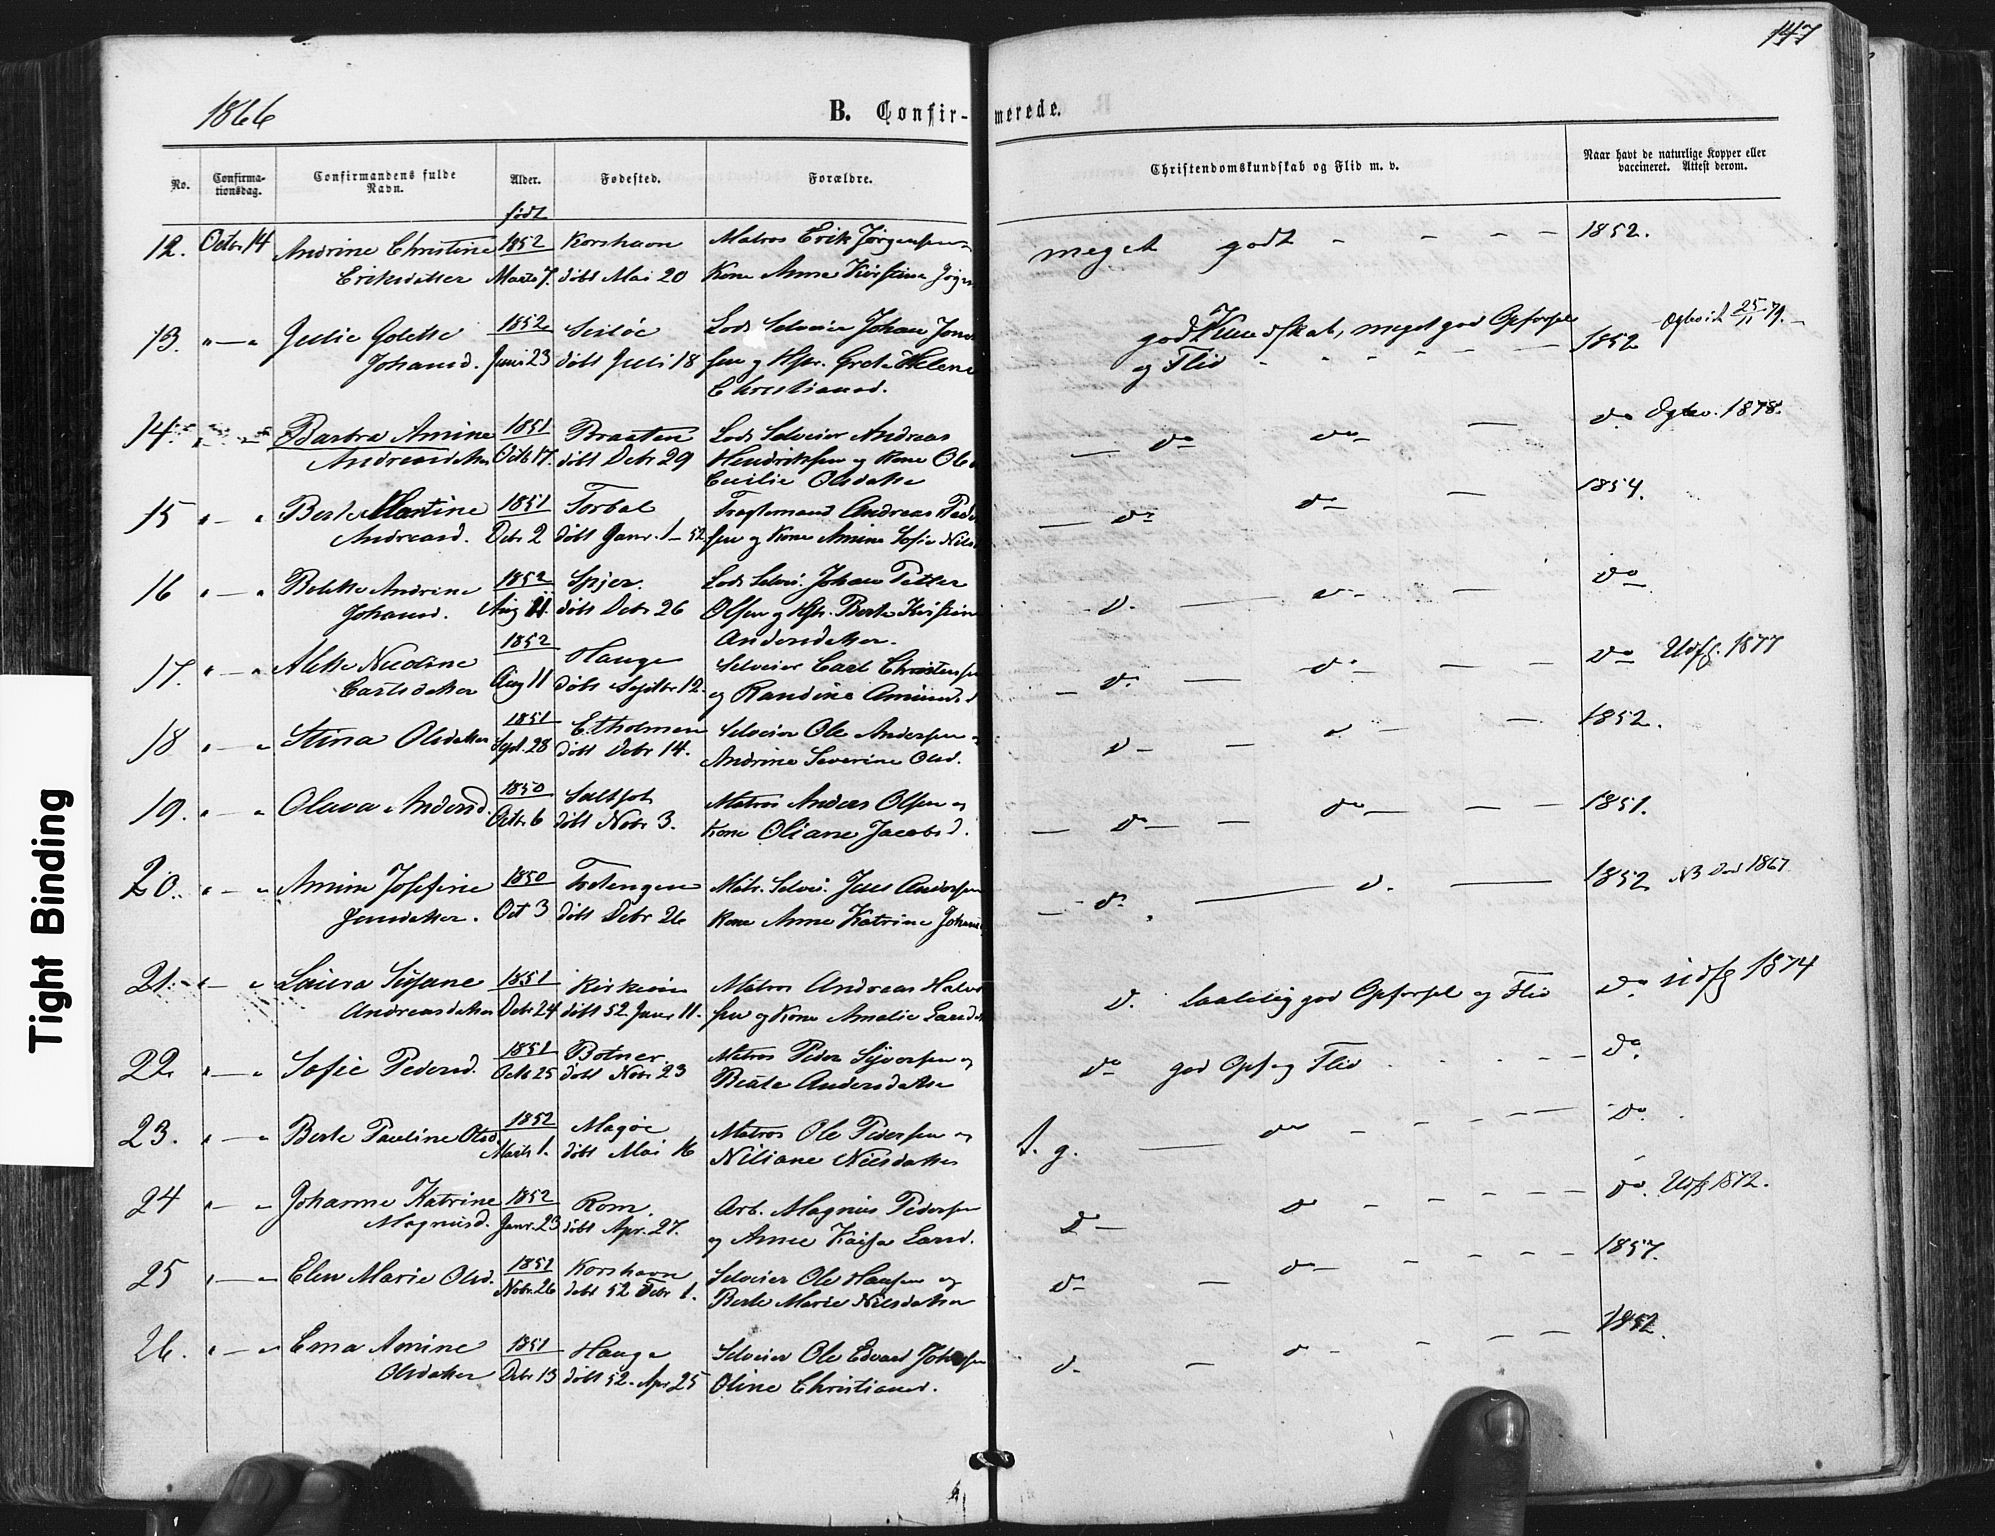 147
1866
B. Confir- merede.
No.
Confirma-
tionsdag.
Confirmandens fulde
Navn.
Alder.
Fødested.
Forældre.
Christendomskundskab og Flid m. v.
Naar havt de naturlige Kopper eller
vaccineret. Attest derom.
født
12. Octbr 14 Andrine Christine 1852 Korshavn Matros Erik Jørgensen meget godt - - - - 1852.
Eriksdatter Marts 7. døbt Mai 20 Kone Anne Kirstine
13. " — " Julie Golette 1852 Lods Selveier Johan godt Kundskab, meget god Opførsel 1852 25/11 79.
Johansd. Juni 23 døbt Juli 18 sen og Grete Helene og Flid
Christiansd.
14 Barbra Amine 1851 Braaten Lods Selveier Andreas — do do — do 1878.
Andreasdatter Octb 17. døbt Debr 29 Hendriksen og Kone
Cecilie Olsdatter
15 " — " Berte Martine 1851 Torbal Andreas — do do — 1854.
Andreasd. Debr 2 døbt Janr. 1 - 52 sen og Kone Amine Sofie
16 " — " Andrine 1852 Spjær. Johan Petter d. — do do
Johansd. Aug 11. døbt Debr 26 Olsen og Berte Kirstine
Andersdatter.
17. " — " Nicoline 1852 Hauge Selveier Carl Christensen — d. — do — do Udfl. 1877
Carlsdatter Aug 11 døbt Septbr 12. og Randine
18 " — " Stina Olsdatter 1851 Selveier Ole Andersen d — 1852.
Sept. 28 døbt Debr 14. Andrine Severine Olsd.
19. " — " Olava Andersd. 1850 Matros Anders Olsen og — do — do — 1851.
Octbr 6 døbt Nobr 3. Kone Oliane Jacobsd.
20. " — " Josefine 1850 Jens Andersen — do — d. — 1852 NB 1867
Jensdatter. Oct 3 døbt Debr 26 Kone Anne Katrine
21. " — " Laura 1851 Matros Andreas d. god Opførsel og Flid do Udfl 1874
Andreasdatter Debr 24 døbt 52 Janr 11. sen og Kone Amalie
22 " — " Sofie Pedersd. 1851 Botner Matros Peder og do god Opf og Flid do
Octb 25 døbt Nobr 23 Beate Andersdatter
23. " — " Berte Pauline Olsd 1852 Magøe Matros Ole Pedersen og t. g. — do do.
Marts 1. døbt Mai 16 Niliane Nilsdatter
24 " — " Johanne Katrine 1852 Rom. Arb. Magnus Pedersen do — do do. Udfl 1872.
Magnusd. Janr. 23 døbt Apr. 27. og Anne Kaisa Larsd.
25 " — " Elen Marie Olsd. 1851 Korshavn Selveier Ole Hansen og do — do — 1857.
Nobr. 26 døbt 52 Febr 1. Berte Marie Nilsdatter
26. " — " Ema Amine 1851 Hauge Selveier Ole Edvard d. — 1852.
Olsdatter Debr 13 døbt 52. Apr 25 Oline Christiansd.
Tight Binding